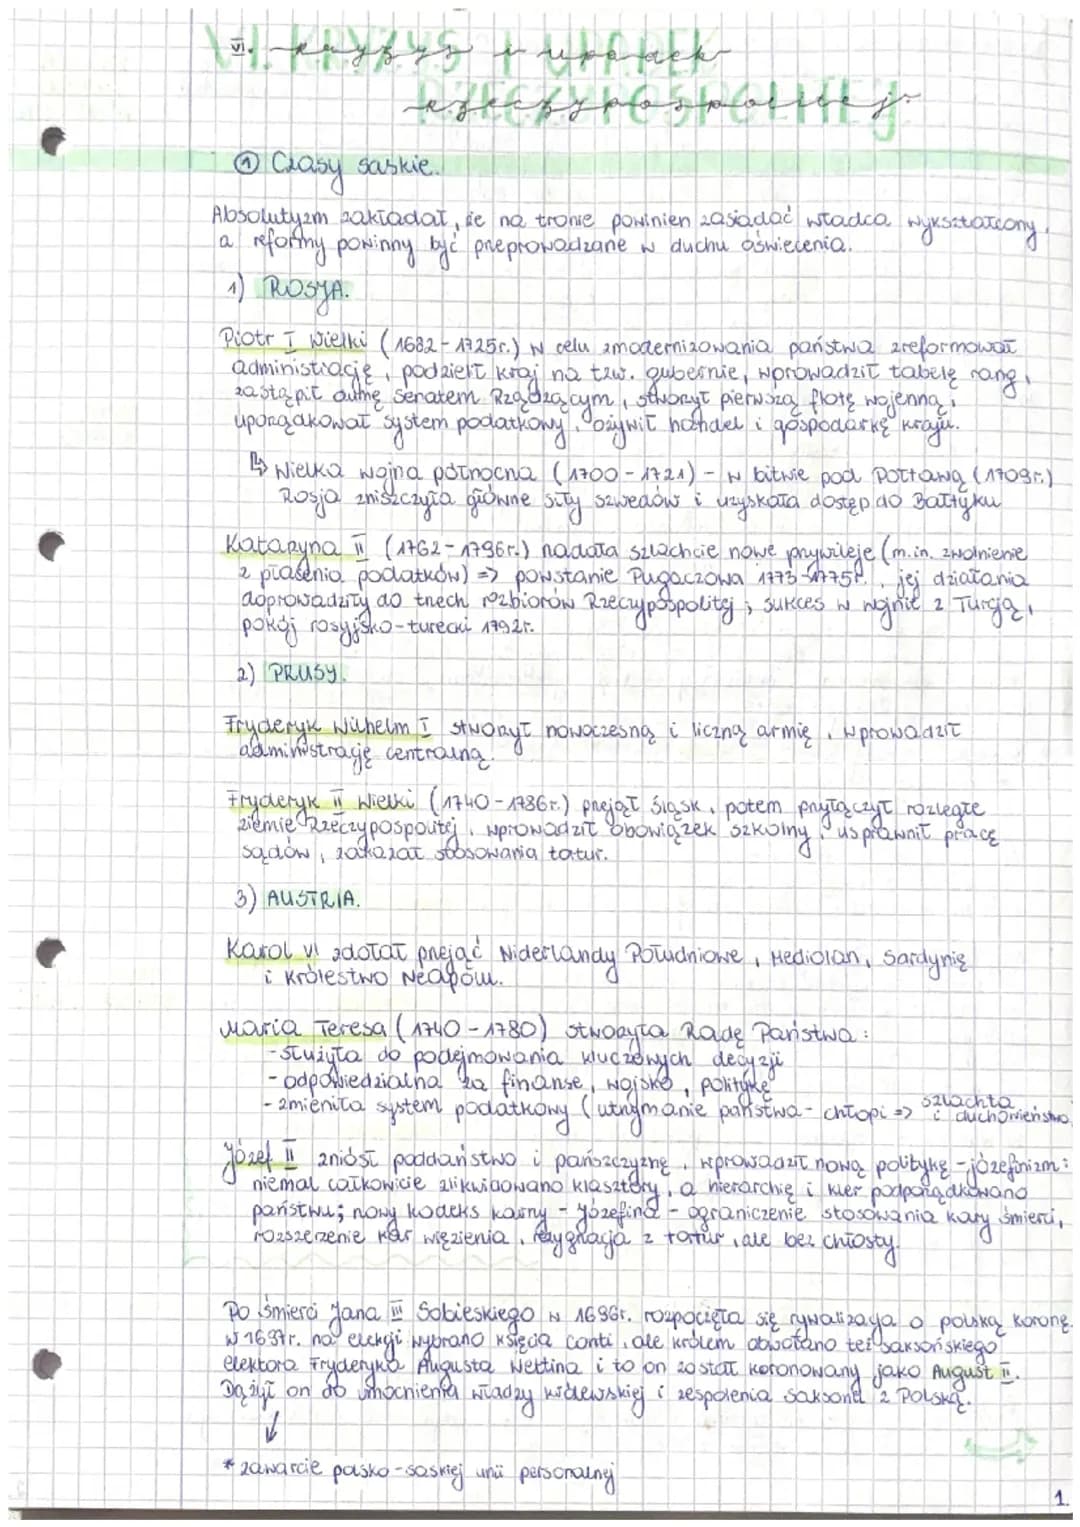 VI. kryzys i upadek
rzeczypospolitej.
① Czasy saskie.
Absolutyzm zakładał, że na tronie powinien zasiadać władca wykształcony,
a reformy powinny być przeprowadzane w duchu oświecenia.
1) ROSJA.
Piotr I Wielki (1682-1725r.) w celu zmodernizowania państwa zreformował
administrację, podzielił kraj na tzw. gubernie, wprowadził tabelę rang,
zastąpił dumę Senatem Rządzącym, stworzył pierwszą flotę wojenną,
uporządkował system podatkowy, ożywił handel i gospodarkę kraju.
↳ Wielka wojna północna (1700-1721) - w bitwie pod Połtawą (1709r.)
Rosja zniszczyła główne siły szwedów i uzyskała dostęp do Bałtyku
Katarzyna II (1762-1796r.) nadała szlachcie nowe przywileje (m.in. zwolnienie
z płacenia podatków) => powstanie Pugaczowa 1773-1775r., jej działania
doprowadziły do trzech rozbiorów Rzeczypospolitej; sukces w wojnie z Turcją,
pokój rosyjsko-turecki 1792r.
2) PRUSY.
Fryderyk Wilhelm I stworzył nowoczesną i liczną armię, wprowadził
administrację centralną.
Fryderyk II Wielki (1740-1786r.) przejął Śląsk, potem przyłączył rozległe
ziemie Rzeczypospolitej, wprowadził obowiązek szkolny, usprawnił pracę
sądów, zakazał stosowania tortur.
3) AUSTRIA.
Karol VI zdołał przejąć Niderlandy Południowe, Mediolan, Sardynię
i Królestwo Neapolu.
Maria Teresa (1740-1780) stworzyła Radę Państwa:
- służyła do podejmowania kluczowych decyzji
- odpowiedzialna za finanse, wojsko, politykę
- zmieniła system podatkowy (utrzymanie państwa - chłopi => szlachta i duchowieństwo
Józef II zniósł poddaństwo i pańszczyznę, wprowadził nową politykę - józefinizm:
niemal całkowicie zlikwidowano klasztory, a hierarchię i kler podporządkowano
państwu; nowy kodeks karny - Józefina - ograniczenie stosowania kary śmierci,
rozszerzenie kar więzienia, rezygnacja z tortur, ale bez chłosty.
Po śmierci Jana III Sobieskiego w 1696r. rozpoczęła się rywalizacja o polską koronę.
W 1697r. na elekcji wybrano księcia Conti, ale królem obwołano też saksońskiego
elektora Fryderyka Augusta Wettina i to on został koronowany jako August II.
Dążył on do umocnienia władzy królewskiej i zespolenia Saksonii z Polską.
↓
* zawarcie polsko-saskiej unii personalnej
1.